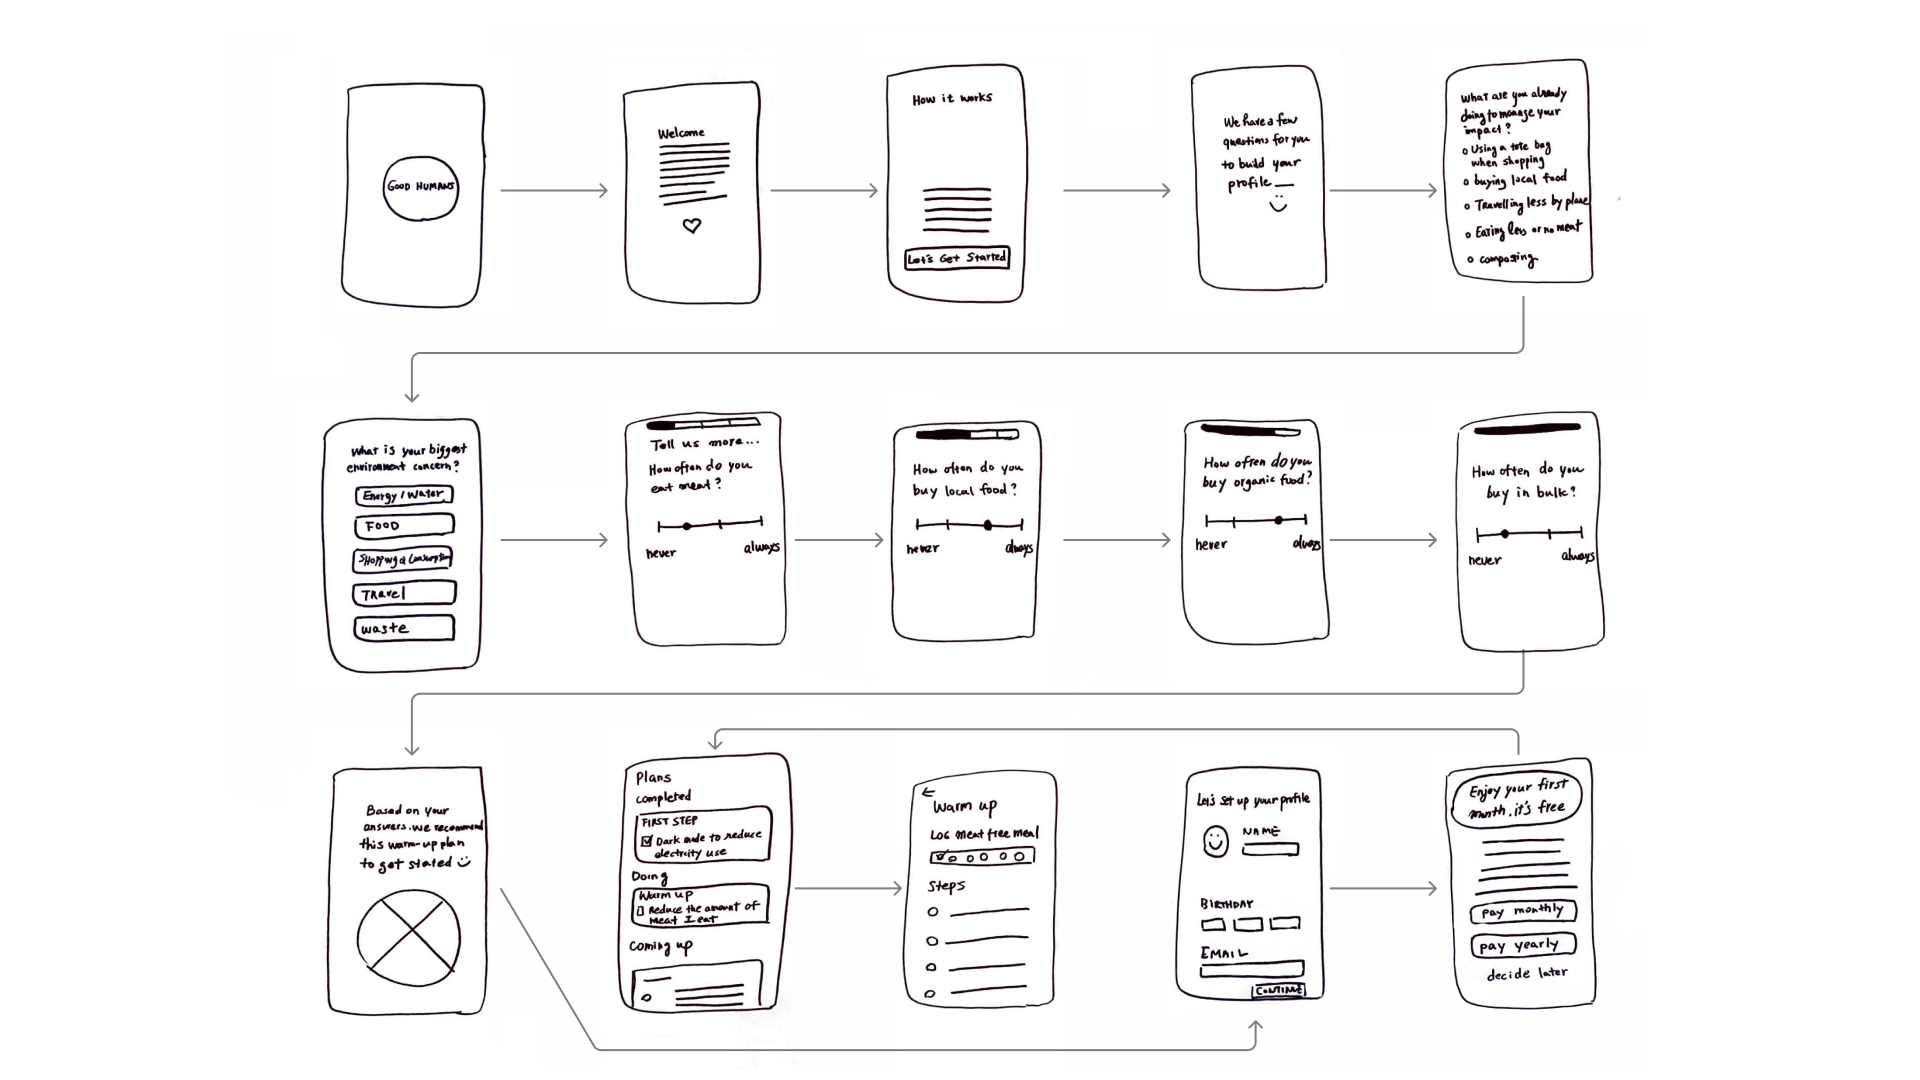 GOOD HUMANS
Welcome
How it works
Let's Get Started
We have a few
questions for you
to build your
profile
What are you already
doing to manage your
impact?
Using a tote bag
when shopping
buying local food
Travelling less by plane
Eating less or no meat
composing
What is your biggest
environment concern?
Energy / Water
FOOD
Shopping & Consumption
Travel
waste
Tell us more...
How often do you
eat meat?
never always
How often do you
buy local food?
never always
How often do you
buy organic food?
never always
How often do you
buy in bulk?
never always
Based on your
answers. we recommend
this warm-up plan
to get stated
Plans
completed
FIRST STEP
Dark mode to reduce
electricity use
Doing
Warm up
Reduce the amount of
meat I eat
Coming up
Warm up
LOG meat free meal
Steps
Let's set up your profile
NAME
BIRTHDAY
EMAIL
CONTINUE
Enjoy your first
month, it's free
pay monthly
pay yearly
decide later